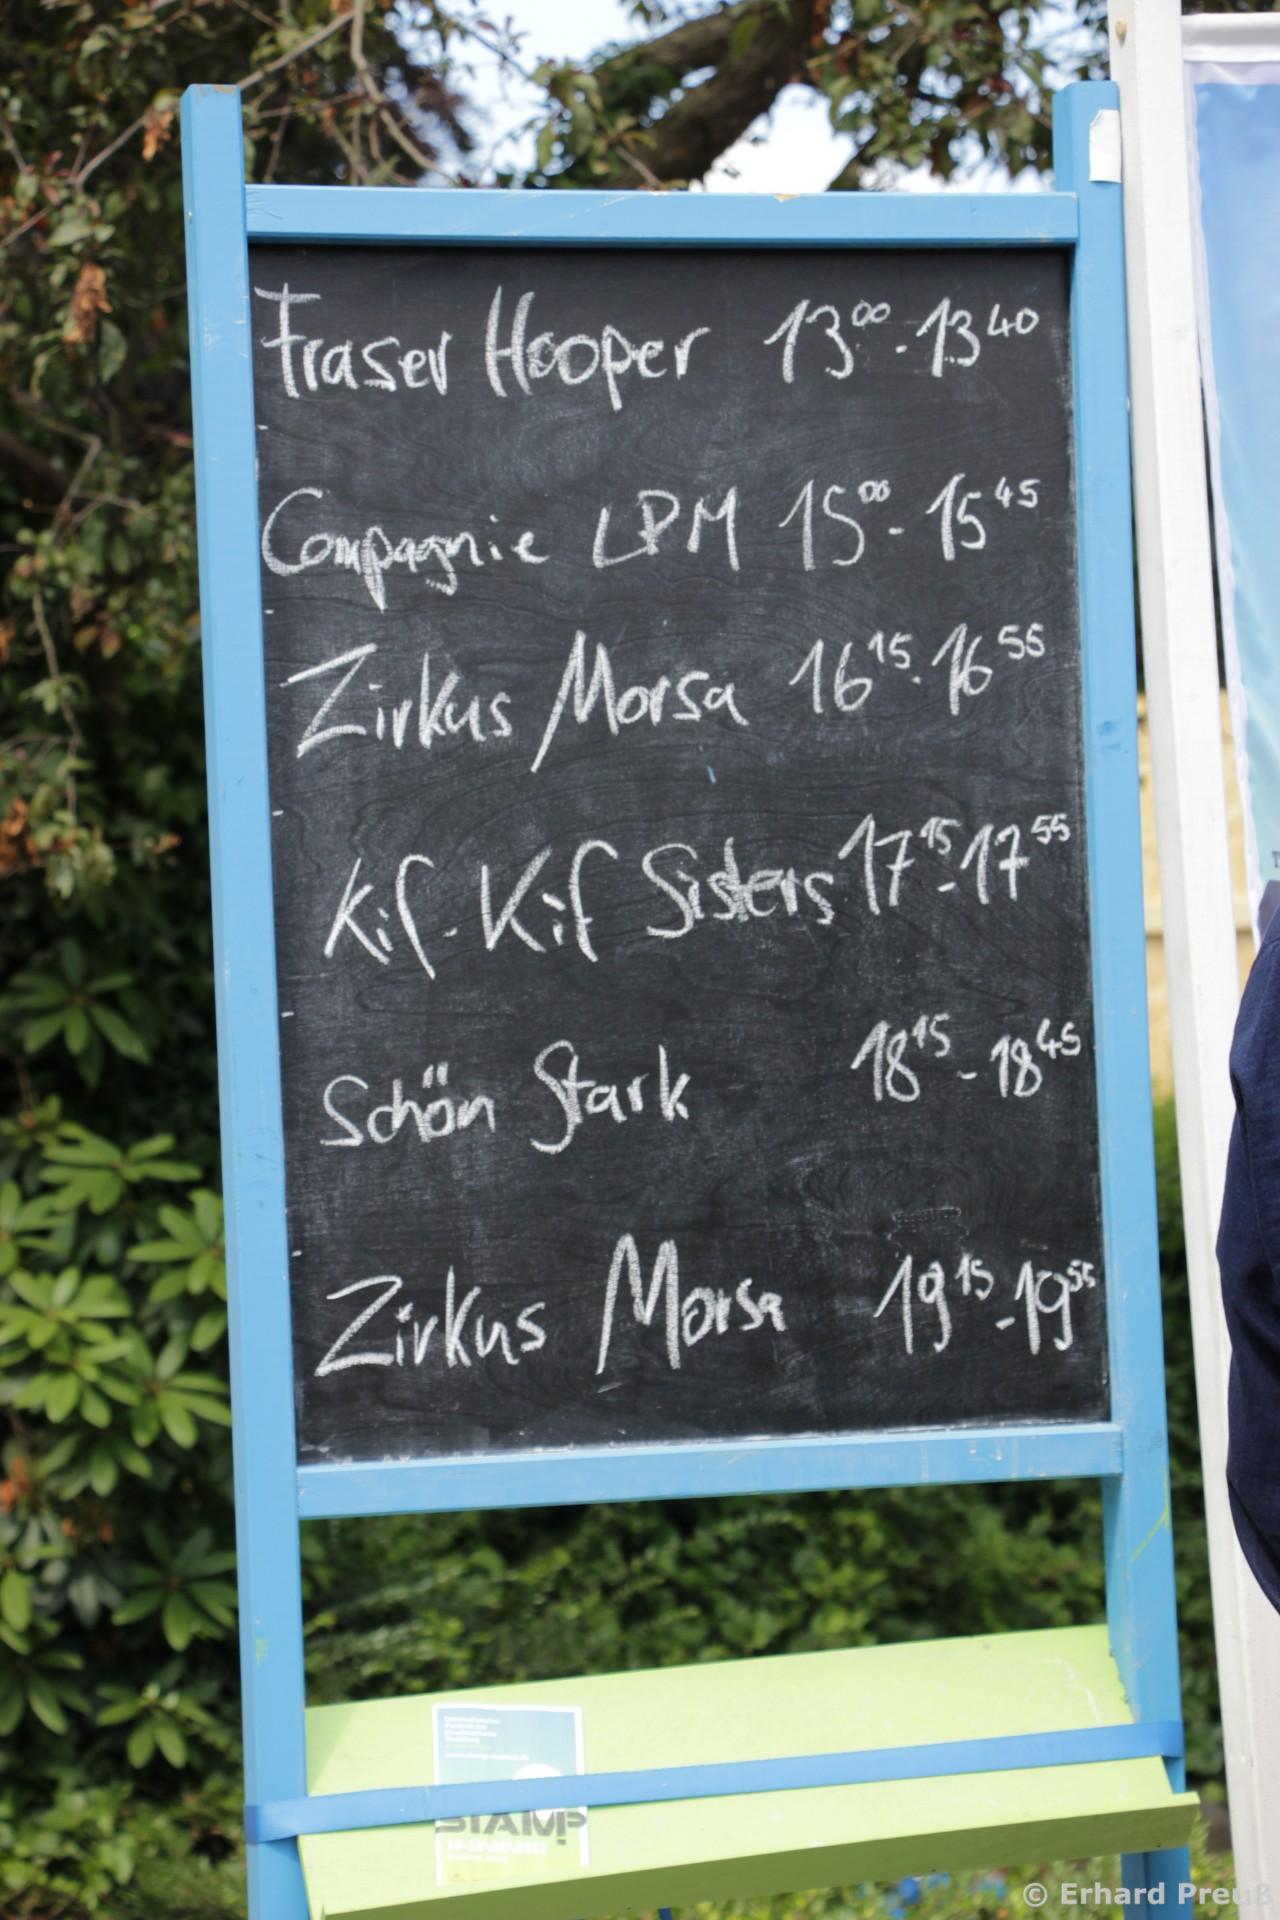 Fraser Hooper 13⁰⁰ - 13⁴⁰
Compagnie LPM 15⁰⁰ - 15⁴⁵
Zirkus Morsa 16¹⁵ - 16⁵⁵
Kif-Kif Sisters 17¹⁵ - 17⁵⁵
Schön Stark 18¹⁵ - 18⁴⁵
Zirkus Morsa 19¹⁵ - 19⁵⁵
STAMP
© Erhard Preuß